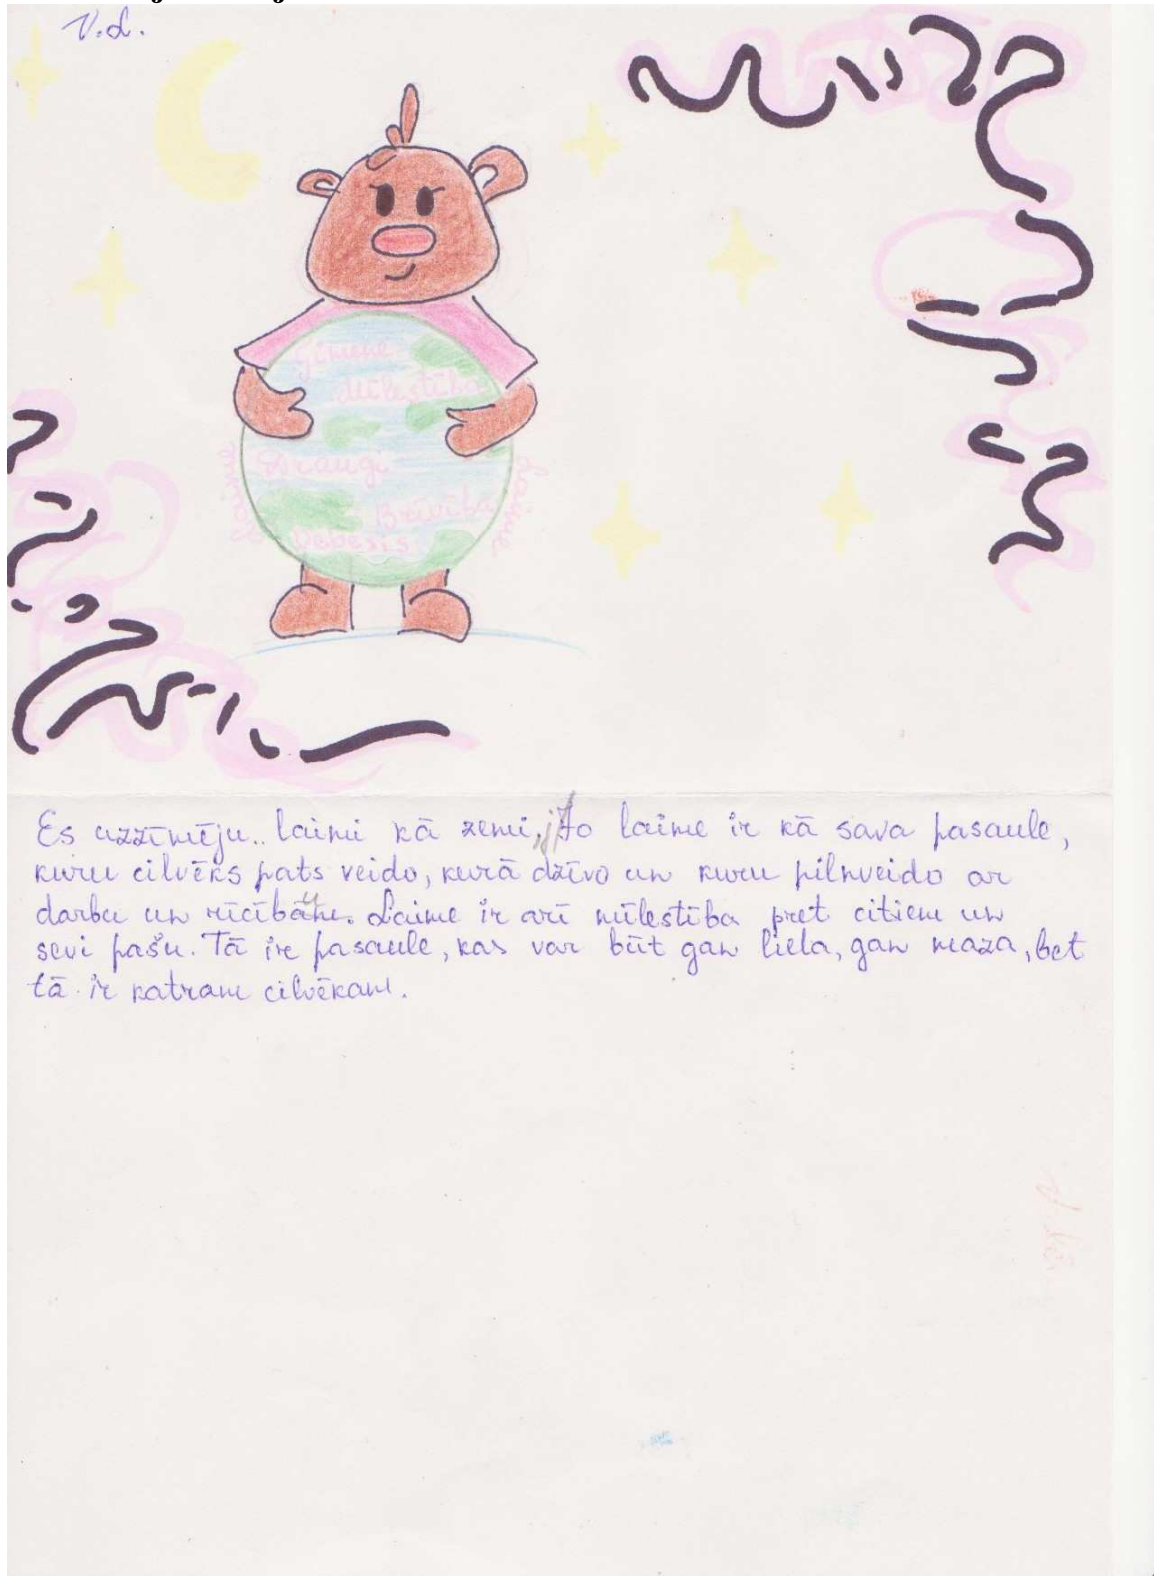 V.d.
Ģimene
Mīlestība
Draugi
Brīvība
Debesis
Laime
Es uzzīmēju.. laimi kā zemi, jo laime ir kā sava pasaule,
kuru cilvēks pats veido, kurā dzīvo un kuru pilnveido ar
darbu un rīcību. Laime ir arī mīlestība pret citiem un
sevi pašu. Tā ir pasaule, kas var būt gan liela, gan maza, bet
tā ir katram cilvēkam.